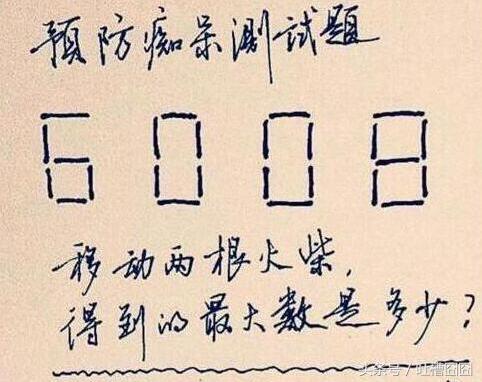 预防痴呆测试题
6008
移动两根火柴,
得到的最大数是多少?
头条号/吐槽囧囧